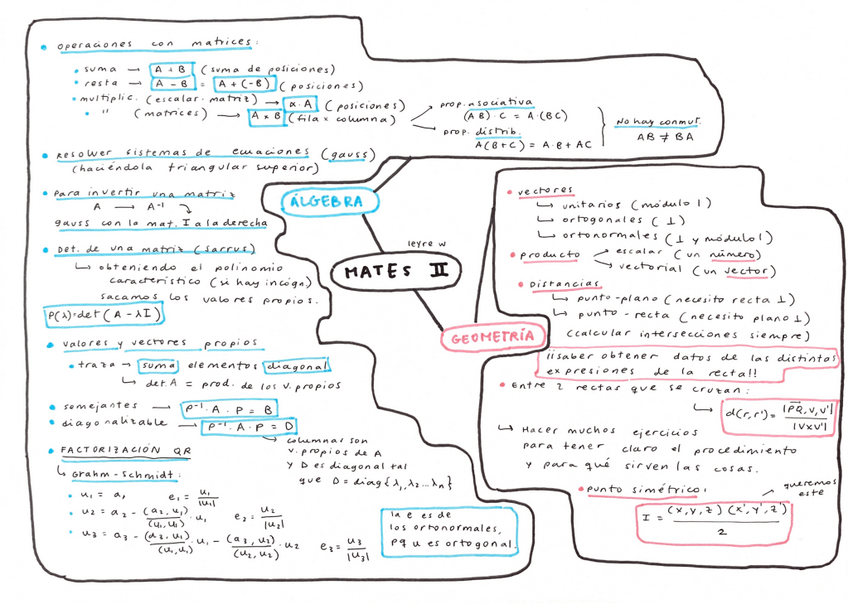 leyre w
MATES II
ÁLGEBRA
• operaciones con matrices:
• suma → A + B (suma de posiciones)
• resta → A - B = A + (-B) (posiciones)
• multiplic. (escalar · matriz) → α·A (posiciones)
• " (matrices) → A × B (fila × columna)
prop. asociativa
(AB)·C = A·(BC)
prop. distrib.
A(B+C) = A·B + AC
No hay conmut.
AB ≠ BA
• Resolver sistemas de ecuaciones (gauss)
(haciéndola triangular superior)
• Para invertir una matriz
A → A⁻¹
gauss con la mat. I a la derecha
• Det. de una matriz (sarrus)
↳ obteniendo el polinomio
característico (si hay incógn)
sacamos los valores propios.
P(λ)=det(A - λI)
• valores y vectores propios
• traza → suma elementos diagonal
↳ det. A = prod. de los v. propios
• semejantes → P⁻¹·A·P = B
• diagonalizable → P⁻¹·A·P = D
↳ columnas son
v. propios de A
y D es diagonal tal
que D = diag{λ₁,λ₂...λₙ}
• FACTORIZACIÓN QR
↳ Grahm-Schmidt:
• u₁ = a₁ e₁ = u₁/|u₁|
• u₂ = a₂ - (a₂,u₁)/(u₁,u₁)·u₁ e₂ = u₂/|u₂|
• u₃ = a₃ - (a₃,u₁)/(u₁,u₁)·u₁ - (a₃,u₂)/(u₂,u₂)·u₂ e₃ = u₃/|u₃|
la e es de
los ortonormales,
pq u es ortogonal.
GEOMETRÍA
• vectores
↳ unitarios (módulo 1)
↳ ortogonales (⊥)
↳ ortonormales (⊥ y módulo 1)
• producto
escalar (un número)
vectorial (un vector)
• Distancias
↳ punto-plano (necesito recta ⊥)
↳ punto-recta (necesito plano ⊥)
(calcular intersecciones siempre)
¡¡saber obtener datos de las distintas
expresiones de la recta!!
• Entre 2 rectas que se cruzan:
↳ d(r,r') = |PQ,v,v'|/|v×v'|
↳ Hacer muchos ejercicios
para tener claro el procedimiento
y para qué sirven las cosas.
• punto simétrico:
queremos
este
I = (x,y,z) (x',y',z')/2